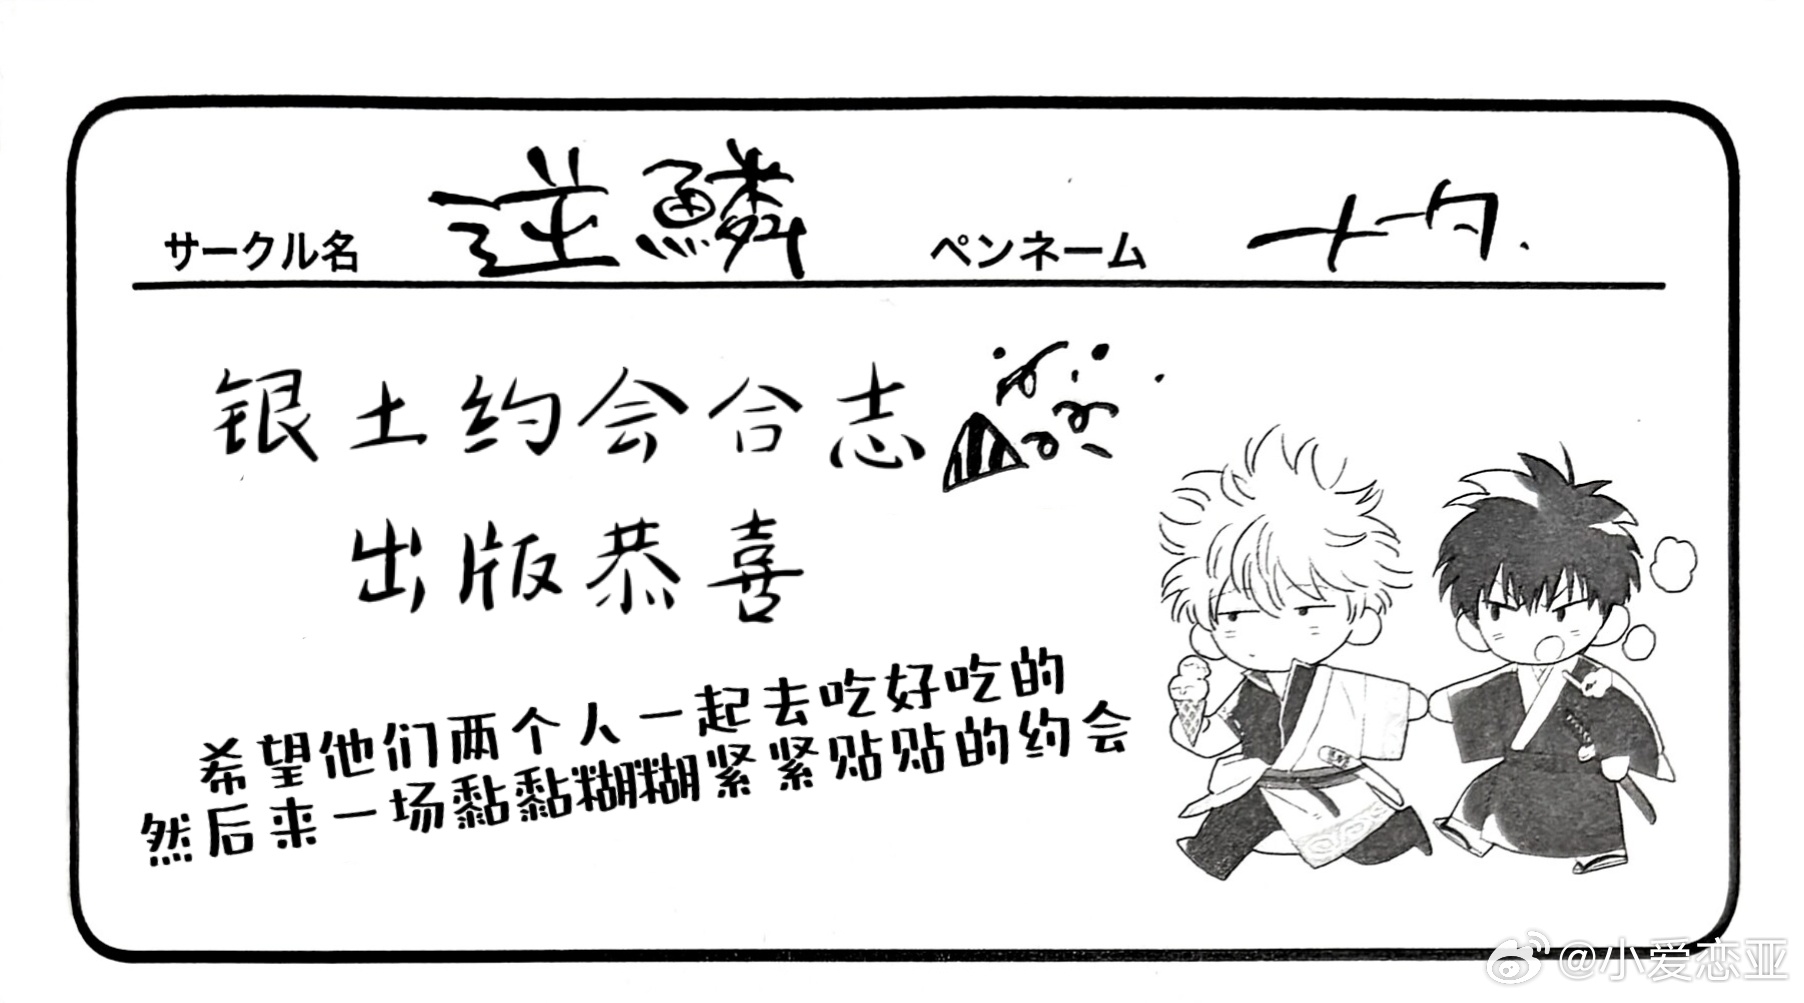 サークル名 逆鱗 ペンネーム
银土约会合志
出版恭喜
希望他们两个人一起去吃好吃的
然后来一场黏黏糊糊紧紧贴贴的约会
@小爱恋亚